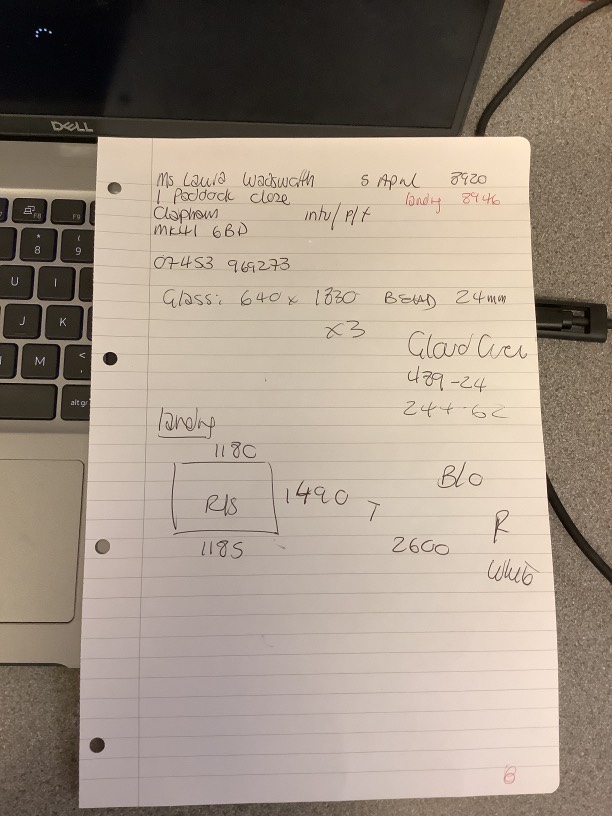 DELL
F8
F9
* 8
( 9
U I
J K
M < ,
alt gr
Ms Laura Wadsworth 5 April 8920
1 Paddock close landing 8946
Clapham intu/p/t
MK41 6BD
07453 969273
Glass: 640 x 1830 BEAD 24mm
x3
489-24
landing
1180
R/S 1490 T
B/O
R
1185 2600
White
6